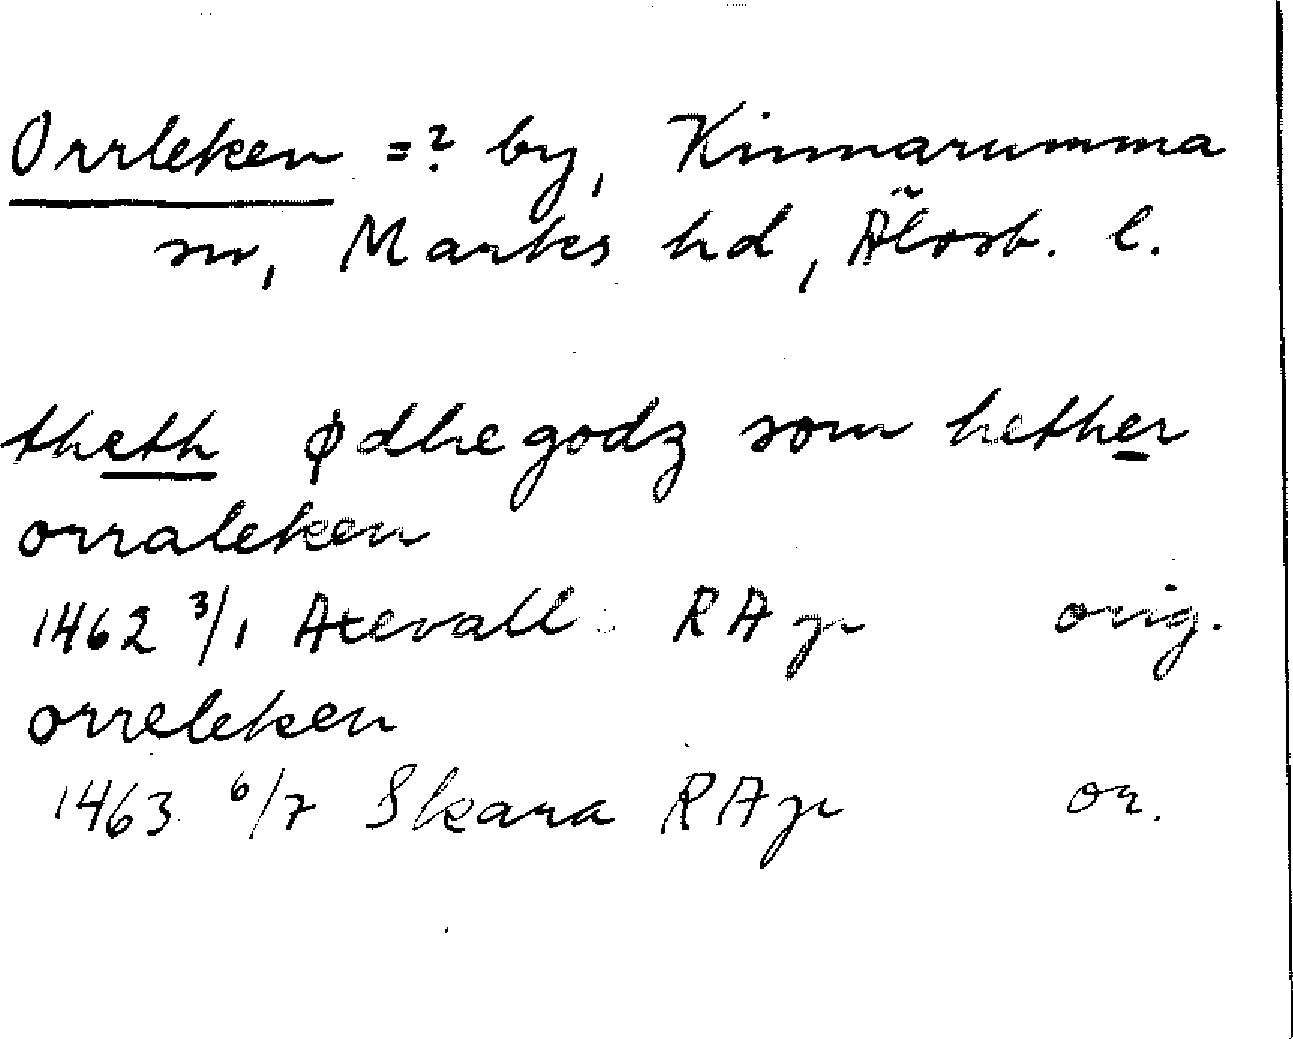 Orrleken =? by, Kinnarumma
sn, Marks hd, Älvsb. l.
theth ødhegodz som hether
orraleken
1462 3/1 Axevall RAp orig.
orreleken
1463 6/7 Skara RAp or.